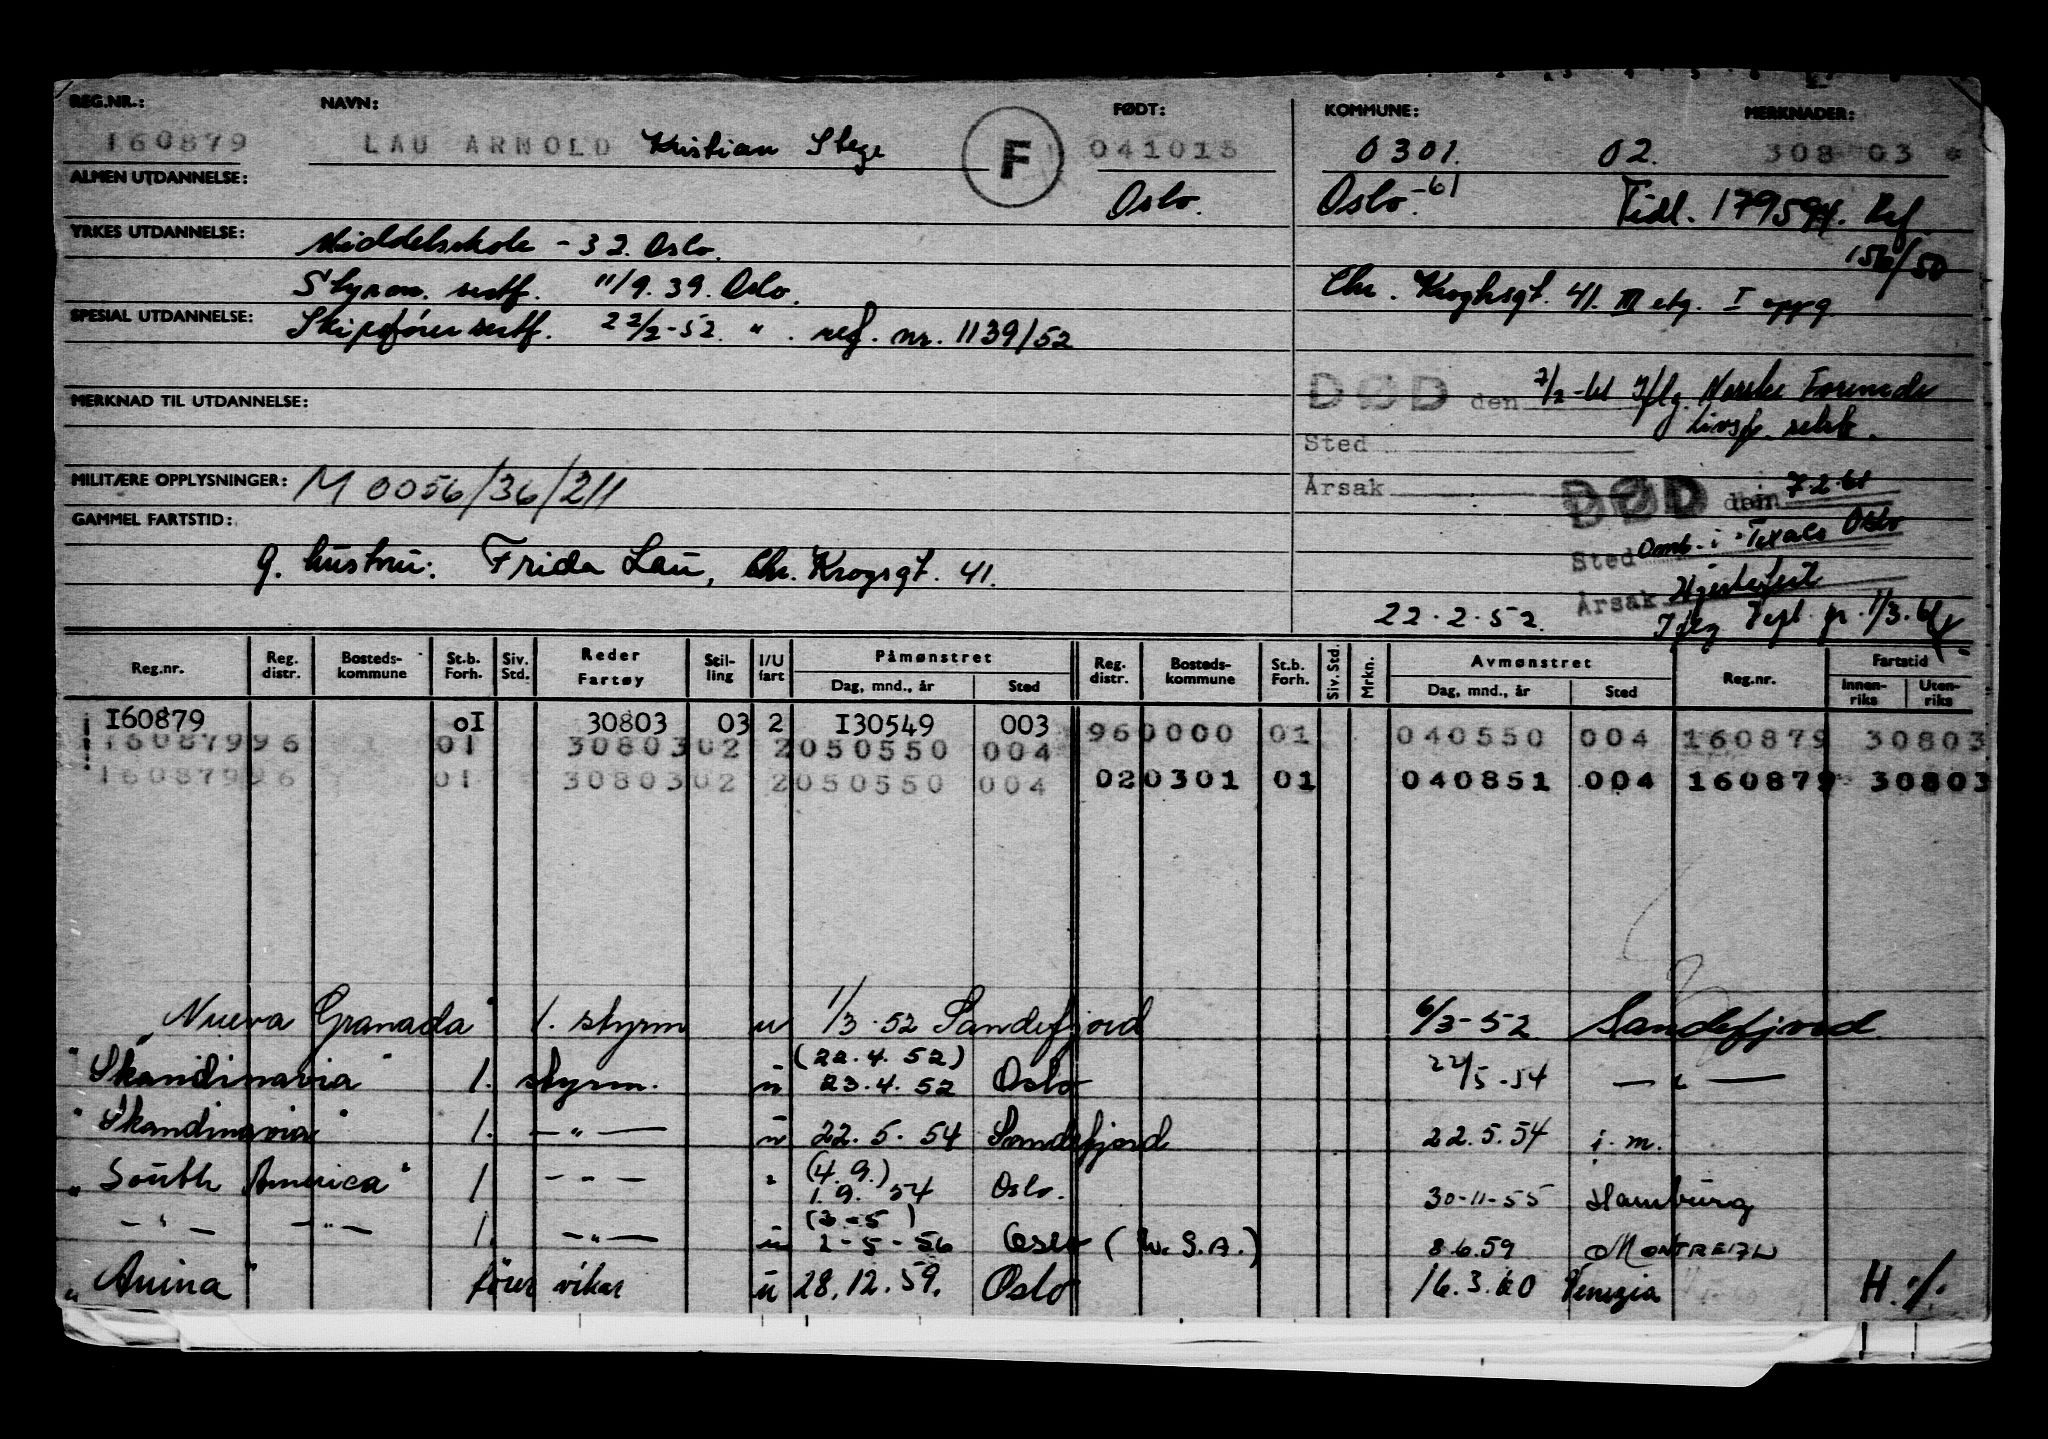 REG.NR.: NAVN: FØDT: KOMMUNE: MERKNADER:
160879 LAU ARNOLD Kristian Stege F 041015 0301. 02. 308 03 *
ALMEN UTDANNELSE: Oslo. Oslo.-61 Tidl. 179594. Ref.
YRKES UTDANNELSE: Middelskole - 32. Oslo. 156/50
Styrm. sertf. 11/9.39. Oslo. Chr. Kroghsgt. 41. III etg. I oppg.
SPESIAL UTDANNELSE: Skipsførersertf. 22/2-52. " . ref. nr. 1139/52
DØD den 7/2-61 Iflg. Norske Forenede
MERKNAD TIL UTDANNELSE: Livsf. selsk.
Sted
MILITÆRE OPPLYSNINGER: M 0056/36/211 Årsak DØD den 7.2.61
GAMMEL FARTSTID: Sted Omb. i "Texaco Oslo
g. hustru: Frida Lau, Chr. Krogsgt. 41. Årsak Hjertefeil
22.2.52. Iflg 1/3.61
Reg.nr. Reg. distr. Bosteds- kommune St.b. Forh. Siv. Std. Reder Fartøy Stil- ling I/U fart Påmønstret Dag, mnd., år Sted Reg. distr. Bosteds- kommune St.b. Forh. Siv. Std. Mrkn. Avmønstret Dag, mnd., år Sted Reg.nr. Fartstid Innen- riks Uten- riks
I60879 0I 30803 03 2 I30549 003 960000 01 040550 004 160879 30803
16087996 01 3080302 2050550 004
16087996 01 3080302 2050550 004 020301 01 040851 004 160879 30803
"Nueva Granada" 1. styrm u 1/3.52 Sandefjord 6/3-52 Sandefjord.
"Skandinavia" 1. styrm. u (22.4.52) 23.4.52 Oslo 22/5-54 — " —
"Skandinavia" 1. — " — u 22.5.54 Sandefjord 22.5.54 i. m.
"South America" 1 — — — " (4.9.) 1.9.54 Oslo. 30-11-55 Hamburg
— " — — " — 1. — " — u (3-5) 2-5-56 Oslo (W.S.A.) 8.6.59 MONTREAL
"Anina" fører vikar u 28.12.59. Oslo 16.3.60 Venezia H. %